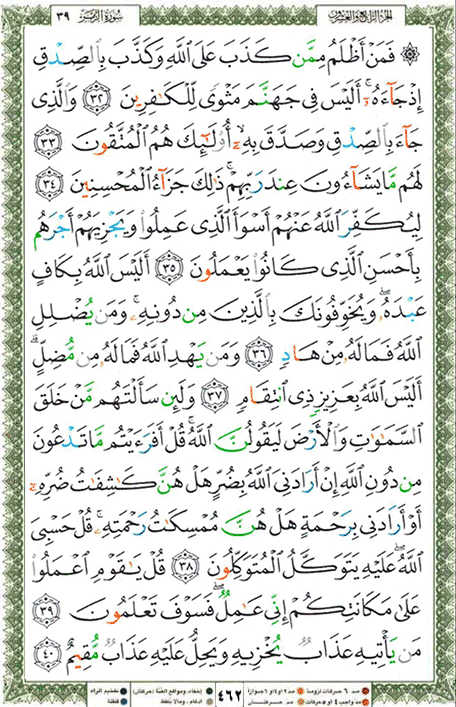 ٣٩ سُورَةُ الزُّمَرِ الجُزءُ الرَّابِعُ وَالعِشْرُونَ
۞ فَمَنْ أَظْلَمُ مِمَّن كَذَبَ عَلَى ٱللَّهِ وَكَذَّبَ بِٱلصِّدْقِ
إِذْ جَآءَهُۥٓ ۚ أَلَيْسَ فِى جَهَنَّمَ مَثْوًى لِّلْكَـٰفِرِينَ ٣٢ وَٱلَّذِى
جَآءَ بِٱلصِّدْقِ وَصَدَّقَ بِهِۦٓ ۙ أُو۟لَـٰٓئِكَ هُمُ ٱلْمُتَّقُونَ ٣٣
لَهُم مَّا يَشَآءُونَ عِندَ رَبِّهِمْ ۚ ذَٰلِكَ جَزَآءُ ٱلْمُحْسِنِينَ ٣٤
لِيُكَفِّرَ ٱللَّهُ عَنْهُمْ أَسْوَأَ ٱلَّذِى عَمِلُوا۟ وَيَجْزِيَهُمْ أَجْرَهُم
بِأَحْسَنِ ٱلَّذِى كَانُوا۟ يَعْمَلُونَ ٣٥ أَلَيْسَ ٱللَّهُ بِكَافٍ
عَبْدَهُۥ ۖ وَيُخَوِّفُونَكَ بِٱلَّذِينَ مِن دُونِهِۦ ۚ وَمَن يُضْلِلِ
ٱللَّهُ فَمَا لَهُۥ مِنْ هَادٍ ٣٦ وَمَن يَهْدِ ٱللَّهُ فَمَا لَهُۥ مِن مُّضِلٍّ ۗ
أَلَيْسَ ٱللَّهُ بِعَزِيزٍ ذِى ٱنتِقَامٍ ٣٧ وَلَئِن سَأَلْتَهُم مَّنْ خَلَقَ
ٱلسَّمَـٰوَٰتِ وَٱلْأَرْضَ لَيَقُولُنَّ ٱللَّهُ ۚ قُلْ أَفَرَءَيْتُم مَّا تَدْعُونَ
مِن دُونِ ٱللَّهِ إِنْ أَرَادَنِىَ ٱللَّهُ بِضُرٍّ هَلْ هُنَّ كَـٰشِفَـٰتُ ضُرِّهِۦٓ
أَوْ أَرَادَنِى بِرَحْمَةٍ هَلْ هُنَّ مُمْسِكَـٰتُ رَحْمَتِهِۦ ۚ قُلْ حَسْبِىَ
ٱللَّهُ ۖ عَلَيْهِ يَتَوَكَّلُ ٱلْمُتَوَكِّلُونَ ٣٨ قُلْ يَـٰقَوْمِ ٱعْمَلُوا۟
عَلَىٰ مَكَانَتِكُمْ إِنِّى عَـٰمِلٌ ۖ فَسَوْفَ تَعْلَمُونَ ٣٩
مَن يَأْتِيهِ عَذَابٌ يُخْزِيهِ وَيَحِلُّ عَلَيْهِ عَذَابٌ مُّقِيمٌ ٤٠
٤٦٢